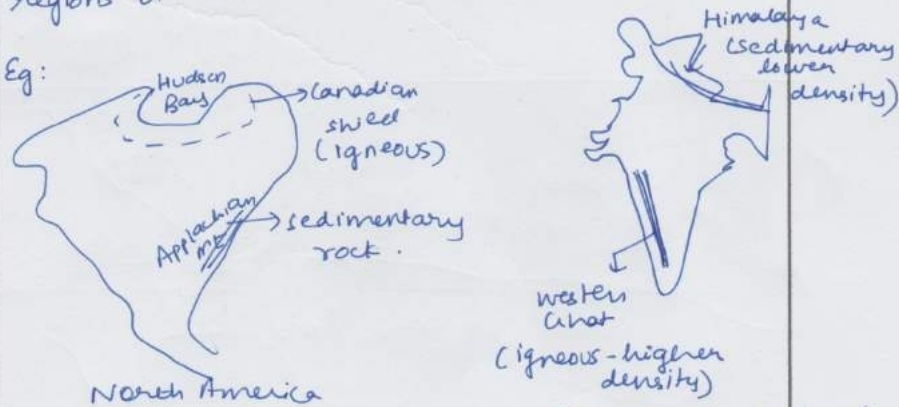 regions o
Eg:
Hudson
Bay
Canadian
shied
(igneous)
Applachian
mt
sedimentary
rock.
North America
Himalaya
(sedimentary
lower
density)
western
Ghat
(igneous-higher
density)